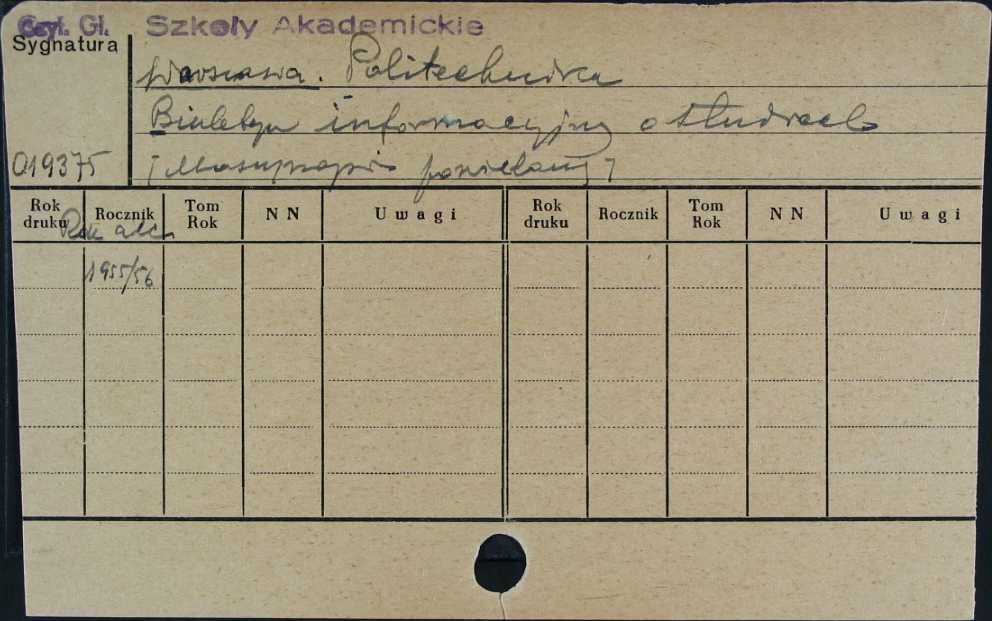 Czyt. Gł. Szkoły Akademickie
Sygnatura
Warszawa. Politechnika
Biuletyn informacyjny o studiach
019375 [Maszynopis powielany]
Rok druku Rocznik Tom Rok NN Uwagi Rok druku Rocznik Tom Rok NN Uwagi
Rok akad.
1955/56